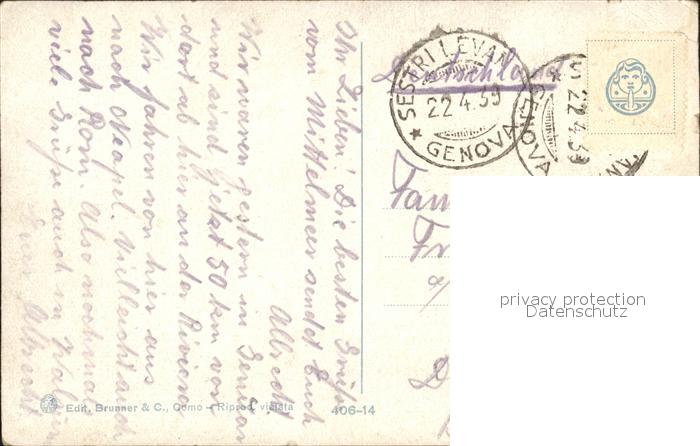 Ihr Lieben! Die besten Grüße
vom Mittelmeer sendet Euch
Albrecht
Wir waren gestern in Genua
und sind jetzt 50 km von
dort ab hier an der Riviera
Wir fahren von hier aus
nach Neapel. Vielleicht auch
nach Rom. Also nochmal
viele Grüße auch in
Euer Albrecht
Deutschland
SESTRI LEVAN
22.4.39
GENOVA
GENOVA
22.4.39
Fam
Fr
D
privacy protection
Datenschutz
Edit. Brunner & C., Como - Riprod. vietata
406-14